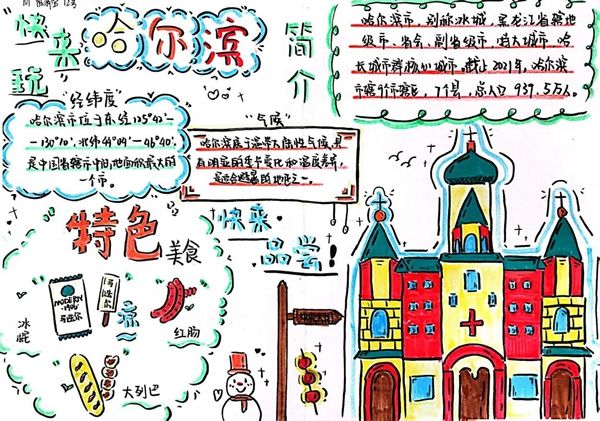 快来
玩
哈尔滨
简
介
哈尔滨市，别称冰城，黑龙江省辖地
级市、省会、副省级市、特大城市，哈
长城市群核心城市，截止2021年，哈尔滨
市辖9个市辖区，7个县，总人口937.5万人。
"经纬度"
哈尔滨市位于东经125°42′-
-130°10′，北纬44°04′-46°40′，
是中国省辖市中陆地面积最大的
一个市。
"气候"
哈尔滨属于温带大陆性气候，具
有明显的季节变化和温度差异，
是适合避暑的地区之一。
特色美食
快来
品尝！
MODERN
·1906·
马迭尔
马迭尔
冰
棍
红肠
大列巴